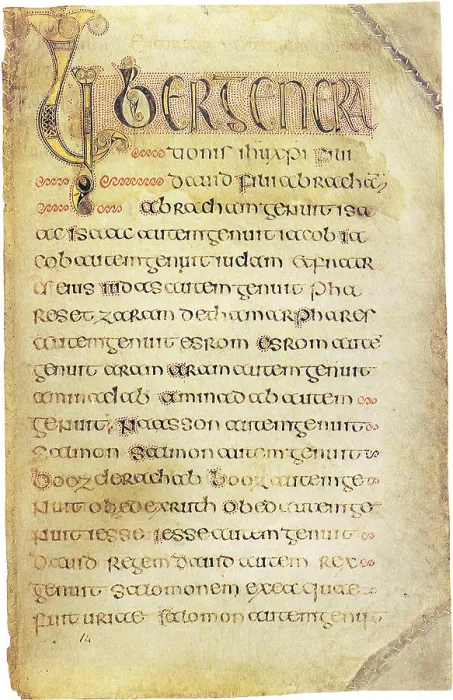 LIBER GENERA
tionis ihu xpi filii
dauid filii abracha
abracham genuit isa
ac isaac autem genuit iacob ia
cob autem genuit iudam et fratr
es eius iudas autem genuit pha
res et zaram de thamar phares
autem genuit esrom esrom autē
genuit aram aram autem genuit
aminadab aminadab autem
genuit naasson autem genuit
salmon salmon autem genuit
booz de rachab booz autem ge
nuit obed ex ruth obed autem ge
nuit iesse iesse autem genuit
dauid regem dauid autem rex
genuit salomonem ex ea quae
fuit uriae salomon autem genuit